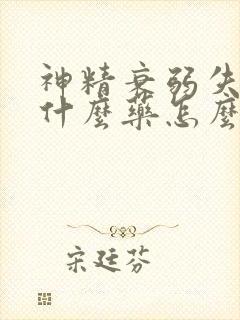 神精衰弱失
什麼藥怎麼
宋廷芬